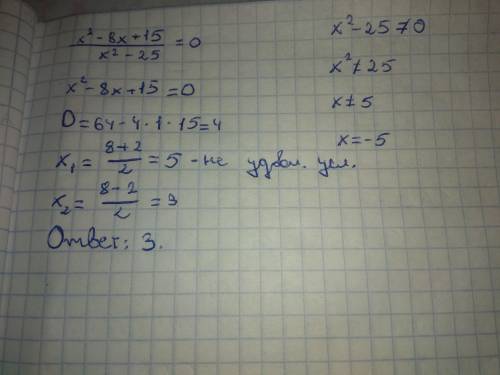 x² - 8x + 15 / x² - 25 = 0
x² - 8x + 15 = 0
D = 64 - 4 · 1 · 15 = 4
x₁ = 8 + 2 / 2 = 5 - не удовл. усл.
x₂ = 8 - 2 / 2 = 3
Ответ: 3.
x² - 25 ≠ 0
x² ≠ 25
x ≠ 5
x = -5